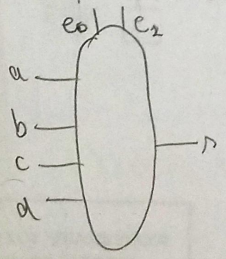 e₀ e₁
a
b
c
d
s